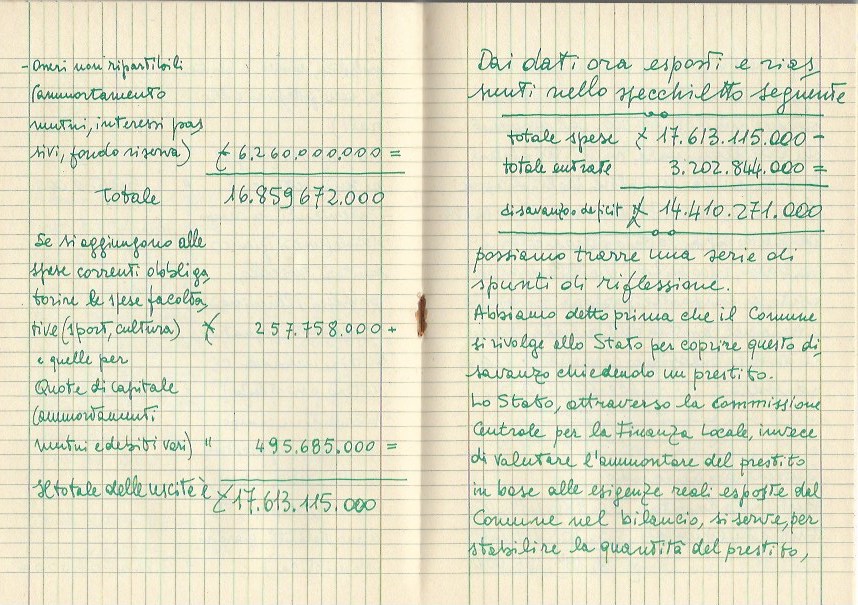 - Oneri non ripartibili
(ammortamento
mutui, interessi pas
sivi, fondo riserva) £ 6.260.000.000 =
Totale 16.859672.000
Se si aggiungono alle
spese correnti obbliga
torie le spese facolta
tive (sport, cultura) £ 257.758.000 +
e quelle per
Quote di capitale
(ammortamenti
mutui e debiti vari) " 495.685.000 =
il totale delle uscite è £ 17.613.115.000
Dai dati ora esposti e rias
sunti nello specchietto seguente
totale spese £ 17.613.115.000 -
totale entrate 3.202.844.000 =
disavanzo o deficit £ 14.410.271.000
possiamo trarre una serie di
spunti di riflessione.
Abbiamo detto prima che il Comune
si rivolge allo Stato per coprire questo di
savanzo chiedendo un prestito.
Lo Stato, attraverso la Commissione
Centrale per la Finanza Locale, invece
di valutare l'ammontare del prestito
in base alle esigenze reali esposte dal
Comune nel bilancio, si serve, per
stabilire la quantità del prestito,